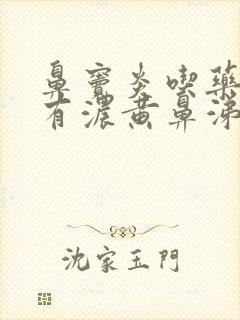 鼻竇炎喫藥
有濃黃鼻涕
沈家玉門